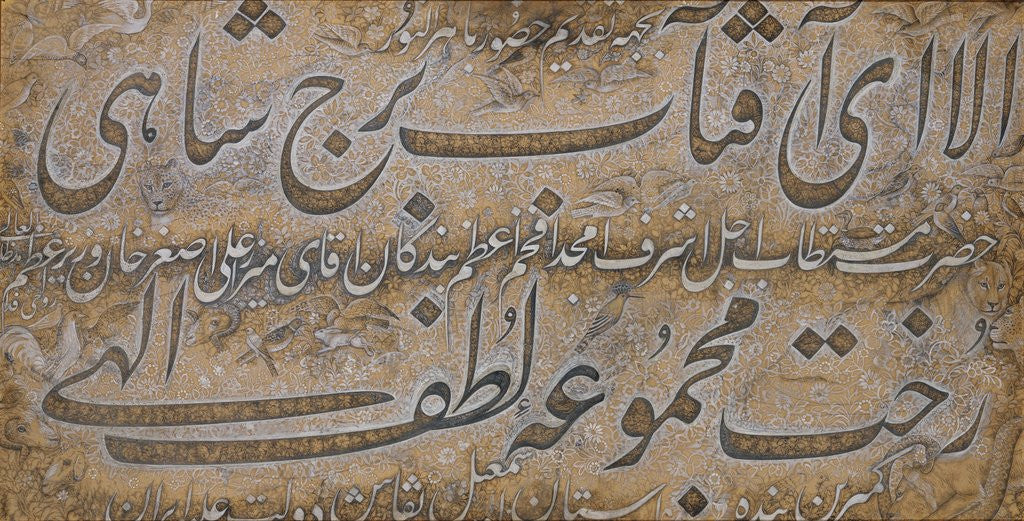 بجهه تقدیم حضور باهر النور
الا ای آفتاب برج شاهی
حضرت مستطاب اجل اشرف امجد افخم اعظم بندگان اقای میرزا علی اصغر خان وزیر اعظم مدظله العالی روحی فداه
رخت مجموعهٔ لطف الهی
کمترین بنده استان سمعیل نقاش دولت علیه ایران